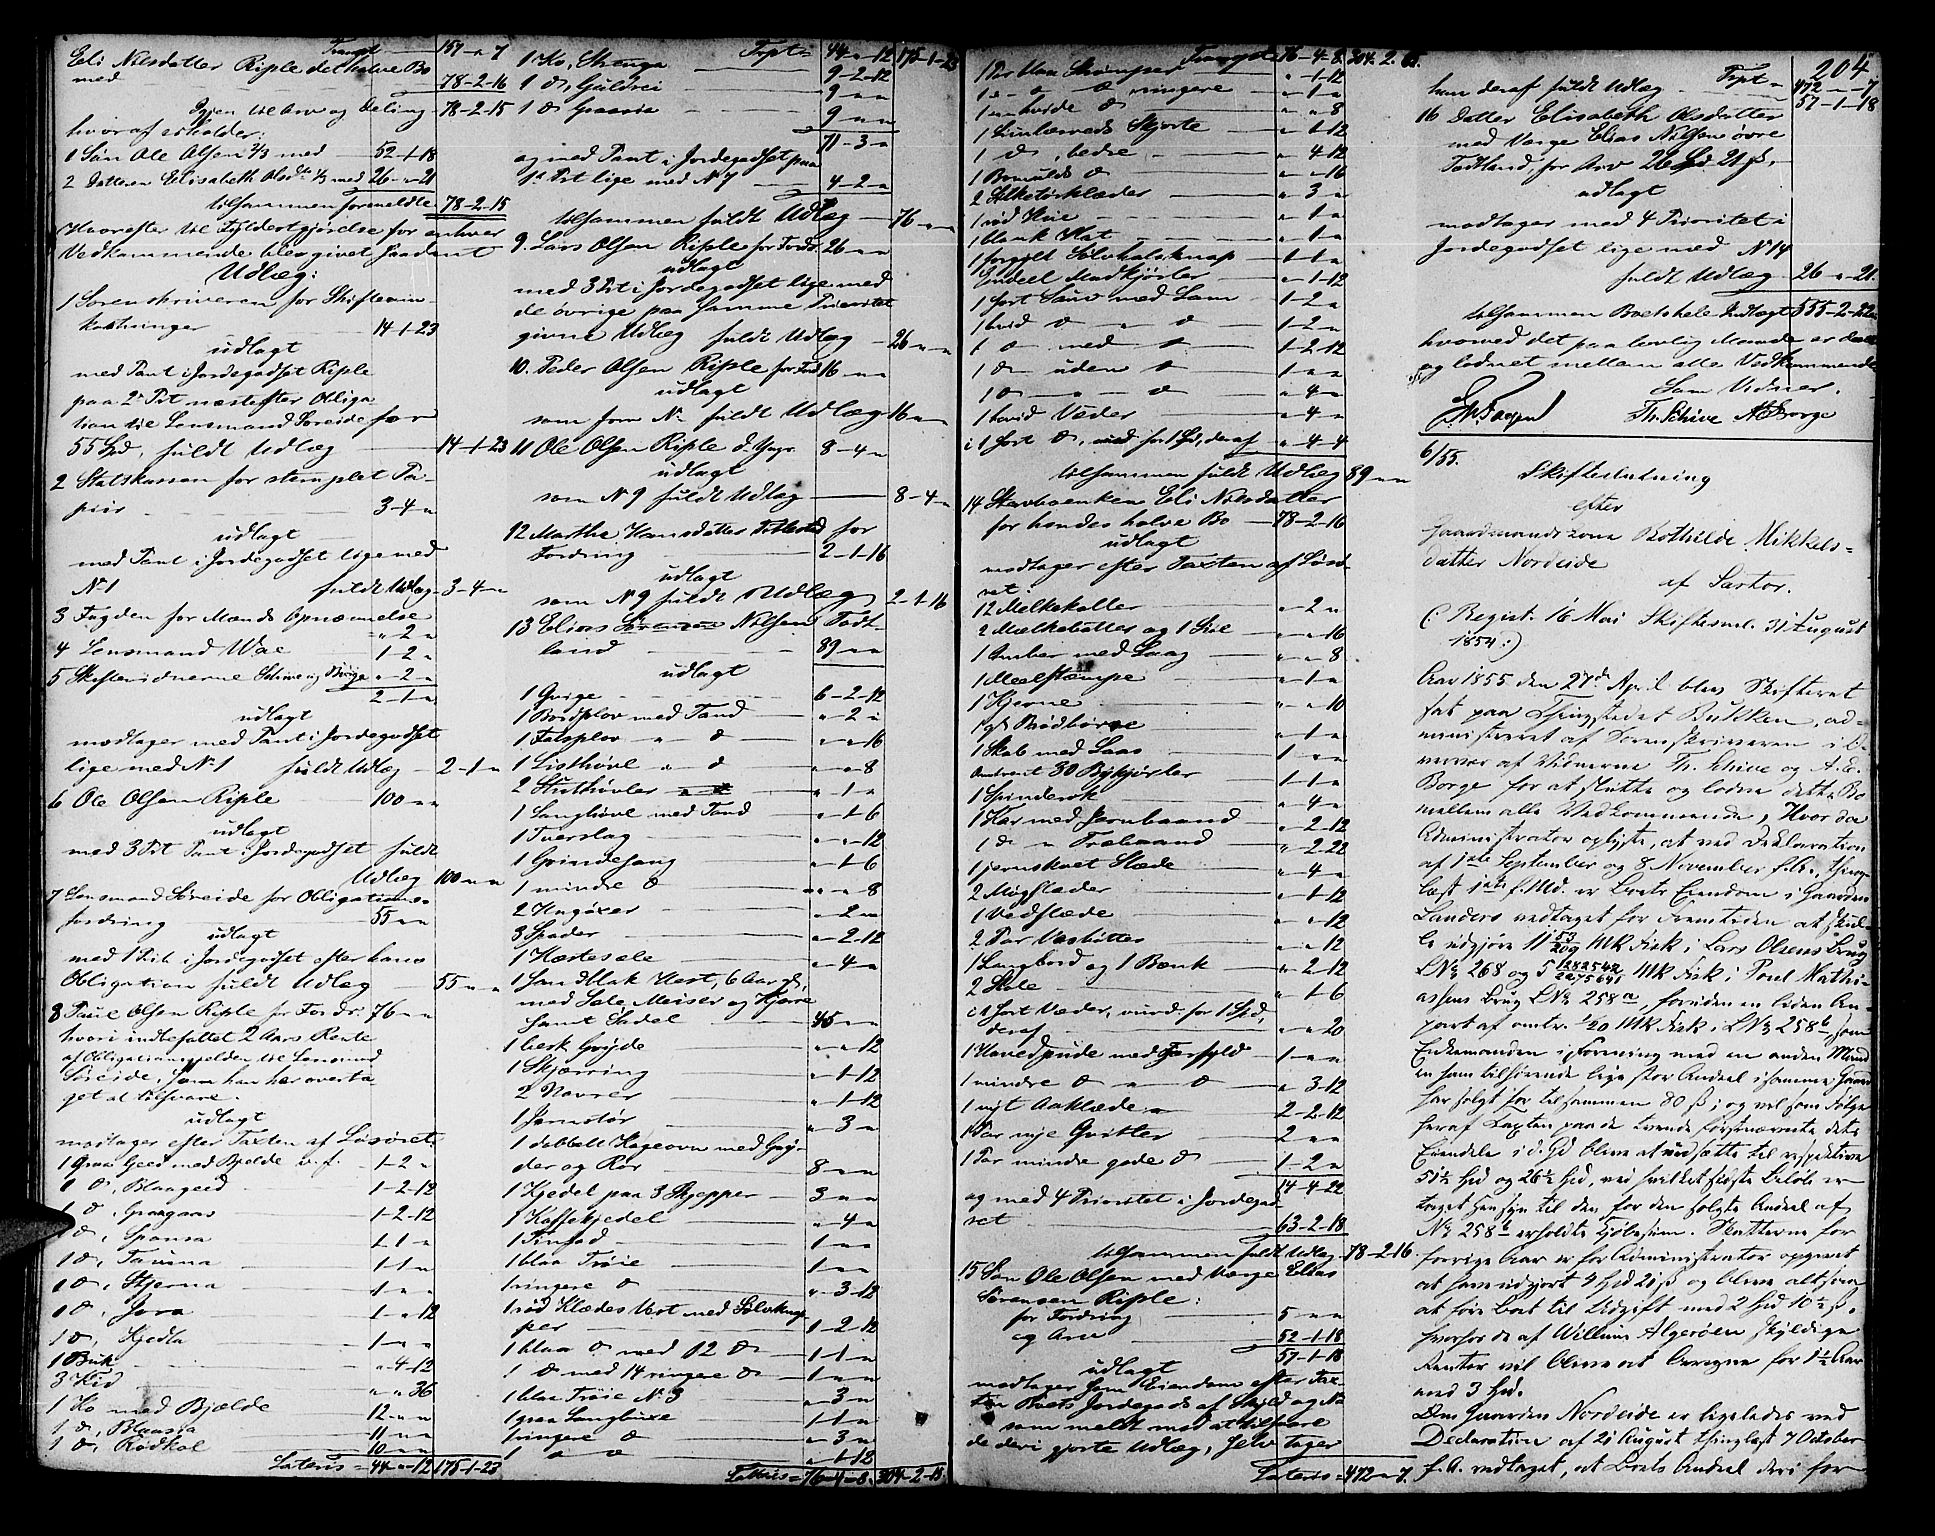 Transpt 157 " 7
Eli Nilsdatter Riple det halve Bo
med 78-2-16
Igjen til Arv og Deling 78-2-15
hvoraf erholder:
1 Søn Ole Olsen 2/3 med 52-1-18
2 Datteren Elisabeth Olsdr 1/3 med 26 " 21
tilsammen formeldte 78-2-15
Hvorefter til Fyldestgjørelse for enhver
Vedkommende blev givet saadant
Udlæg:
1 Sorenskriveren for Skifteom-
kostninger 14-1-23
udlagt
med Pant i Jordegodset Riple
paa 2 Prt næstefter Obliga
tion til Lensmand Søreide for
55 Spd, fuldt Udlæg 14-1-23
2 Statskassen for stemplet Pa-
piir 3-4-"
udlagt
med Pant i Jordegodset lige med
No 1 fuldt Udlæg 3-4-"
3 Fogden for Mænds Opnævnelse " 2 "
4 Lensmand Wae 1-2-"
5 Skiftevidnerne Schive og Borge " 2 "
2-1-"
udlagt
modtager med Pant i Jordegodset
lige med No 1 fuldt Udlæg 2-1-"
6 Ole Olsen Riple 100 " "
udlagt
med 3 Prt Pant i Jordegodset fuldt
Udlæg 100 " "
7 Lensmand Søreide for Obligations-
fordring 55 " "
udlagt
med 1 Prt. i Jordegodset efter hans
Obligation fuldt Udlæg 55 " "
8 Olsen Riple for Fordr: 76 " "
hvori indbefattet 2 Aars Rente
af Obligationsgjelden til Lensmand
Søreide, som han har overta
get at tilsvare.
udlagt
modtager efter Taxten af Løsøret:
1 graa Geed med Bjelde 1-2-"
1 D, Blaageed 1-2-12
1 D, Graagaas 1-2-12
1 D, Spansa 1-1-"
1 D, 1-1-"
1 D, Stjerna 1-"-"
1 D, Jora 1-"-12
1 D, Kjedla 1-"-"
1 Buk "-4-12
3 Kid " " 36
1 Ko med Bjælde 12-"-"
1 D, Blaasia 11-"-"
1 D, Rødkol 10-"-"
Lateris = 44-"-12 175-1-23
Trpt = 44-"-12 175-1-23
1 Ko, Strenga 9-2-12
1 D, Guldrei 9-"-"
1 D Graasia 9-"-"
71-3-"
og med Pant i Jordegodset paa
1 Prt lige med No 7 4-2-"
tilsammen fuldt Udlæg 76-"-"
9. Lars Olsen Riple for Fordr. 26-"-"
udlagt
med 3 Prt i Jordegodset lige med
de øvrige paa samme Prioritet
givne Udlæg fuldt Udlæg 26-"-"
10. Peder Olsen Riple for Ford 16-"-"
udlagt
som forr No fuldt Udlæg 16-"-"
11 Ole Olsen Riple d. Yngr. 8-4-"
udlagt
som No 9 fuldt Udlæg 8-4-"
12 Marthe Hansdatter for
Fordring 2-1-16
udlagt
som No 9 fuldt Udlæg 2-1-16
13 Elias Nilsen Todt-
land 89-"-"
udlagt
1 Qvige 6-2-12
1 Bordplov med Tand "-2-"
1 Falsplov " D " " 16
1 Listhøvl " D " " 8
2 Stuthøvler " 1 "
1 Langhøvl med Tand " 1-6
1 Tverslag " " 12
1 Grindesaug " 1-6
1 mindre D " " 8
2 Hugøxer " 2 "
3 Spader " 2-12
1 Hestesele " 4 "
1 sandblak Hest, 6 Aar gl,
med Sele Meiser og Kjøre
samt Sadel 45-"-"
1 læk Gryde " " 12
1 Skjærring " 1-12
2 Navrer " 1-12
1 Jernstør " 3 "
1 dobbelt Kageovn med Gry-
der og Rør 8-"-"
1 Kjedel paa 3 Skjepper 3-"-"
1 Kaffekjedel " 4 "
1 Tinfad 1-"-"
1 blaa Trøie 1-"-"
1 ringere D " 3-12
1 rød Klædes Vest med Sølvknap
per 1-2-12
1 blaa D med 12 D 1-1-"
1 D med 14 ringere D 1-"-"
1 blaa Trøie No 3 " 3 "
1 graa Langbuxe 1-1-"
1 ringere D " 3 "
1 D D " 1-12
Lateris = 76-4-8. 304-2-15.
Transpt 76-4-8 304-2-15.
1 Par Uld Strømper " 1-12
1 " D ringere " 1 "
1 " hvide D " " 8
1 Linlærreds Skjorte " 1-12
1 D, bedre " 4-12
1 Bomulds D " " 16
2 Silketørklæder " 3 "
1 rød Hue " 1 "
1 blank Hat " 1 "
1 forgyldt Sølvhalsknap 1-1-"
Endeel Madkjørler " 1-12
1 sort Sauv med Lam 1-2-"
1 hvid D " D 1-2-"
1 D med D 1-2-12
1 D uden D 1-"-"
1 D " D " 4 "
1 hvid Væder " 4 "
i 1 sort D, vurd. for 1 Spd, deraf " 4-4
tilsammen fuldt Udlæg 89-"-"
14 Stervboenken Eli Nilsdatter
for hendes halve Bo 78-2-16
udlagt
modtager efter Taxten af Løsø-
ret:
12 Melkekoller " 2 "
2 Melkebøtter og 1 Sie " " 16
1 Ambar med Laag " " 8
1 Meelstampe " 1 "
1 Kjerne " " 10
1 gl. Brødbørge " 1 "
1 Skab med Laas 1-"-"
Omtrent 30 Bykjørler 1-1-"
1 Spinderok " 4 "
1 Kar med Jernbaand " 2-12
1 D " Træbaand " 2-22
1 jernskoet Slæde " 4 "
2 Møgslæder " 1-12
1 Vedslæde " " 12
2 Par Vasbøtter " " 12
1 Langbord og 1 Bænk " 2-12
2 Stole " 1-6
i 1 sort Væder, vurd. for 1 Spd,
deraf " " 20
1 Hovedpude med Forfyld 1-"-"
1 mindre D " D " 3-12
1 nyt Aaklæde 2-2-12
1 Par nye Gvitler 2-"-"
1 Par mindre gode D 1-2-"
14-4-22
og med 4 Prioritet i Jordegod-
set 63-2-18
tilsammen fuldt Udlæg 78-2-16.
15 Søn Ole Olsen med Værge Elias
Sørensen Riple:
for Fordring 5-"-"
og Arv 52-1-18
57-1-18
udlagt
modtager som Eiendom efter Tax-
ten Boets Jordegods af Skyld og No
som meldt mod at tilsvare
de deri gjorte Udlæg, selv tager
Lateris = 472-"-7.
204
Trpt " 472-"-7
han deraf fuldt Udlæg 57-1-18
16 Datter Elisabeth Olsdatter
med Værge Elias Nilsen øvre
Todtland for Arv 26 Spd 21 ß,
udlagt
modtager med 4 Prioritet i
Jordegodset lige med No 14
fuldt Udlæg 26-"-21.
tilsammen Boets hele Indtægt 555-2-22
hvormed det paa lovlig Maade er
og lodnet mellem alle Vedkommende.
Som Vidner.
Th. Schive A E Borge
6/55.
Skifteslutning
efter
Gaardmandskone Bothilde Mikkels-
datter Nordeide
af Sartor.
(: Regist. 16 Mai Skiftesml. 31 August
1854:)
Aar 1855 den 27de April blev Skifteret
sat paa Thingstedet Bukken, ad-
ministreret af Sorenskriveren i O-
vervær af Vidnerne Th. Schive og A. E.
Borge for at slutte og lodne dette Bo
mellem alle Vedkommende, Hvor da
Administrator oplyste, at ved Deklaration
af 1ste September og 8 November f. A., thing-
læst 1ste f. Md. er Boets Eiendom i Gaarden
Landers vedtaget for Fremtiden at skul-
le udgjøre 11 53/209 Mk Fisk i Lars Olsens Brug
LNo 268 og 5 Mk Fisk i Poul Mathi-
assens Brug LNo 258a, foruden en liden An-
part af omtr. 1/20 Mk Fisk i LNo 258b, som
Enkemanden i Forening med en anden Mand
en ham tilhørende lige stor Andeel i samme Gaard
har solgt for tilsammen 80 ß; og vil som Følge
heraf Taxten paa de tvende førstnævnte
Eiendele i d. Gd blive at udsætte til respektive
51½ Spd og 26½ Spd, ved hvilket sidste Beløb er
taget Hensyn til den for den solgte Andeel af
No 258b erholdte Kjøbesum. Skatterne for
forrige Aar er for Administrator opgivet
at have udgjort 4 Spd 21 ß og bliver altsaa
at føre Boet til Udgift med 2 Spd 10½ ß,
hvorhos de af Willum Algerøen skyldige
Renter vil blive at beregne for 1½ Aar
med 3 Spd.
Om Gaarden Nordeide er ligeledes ved
Declaration af 21 August thinglæst 7 October
f. A. vedtaget, at Boets Andeel deri for